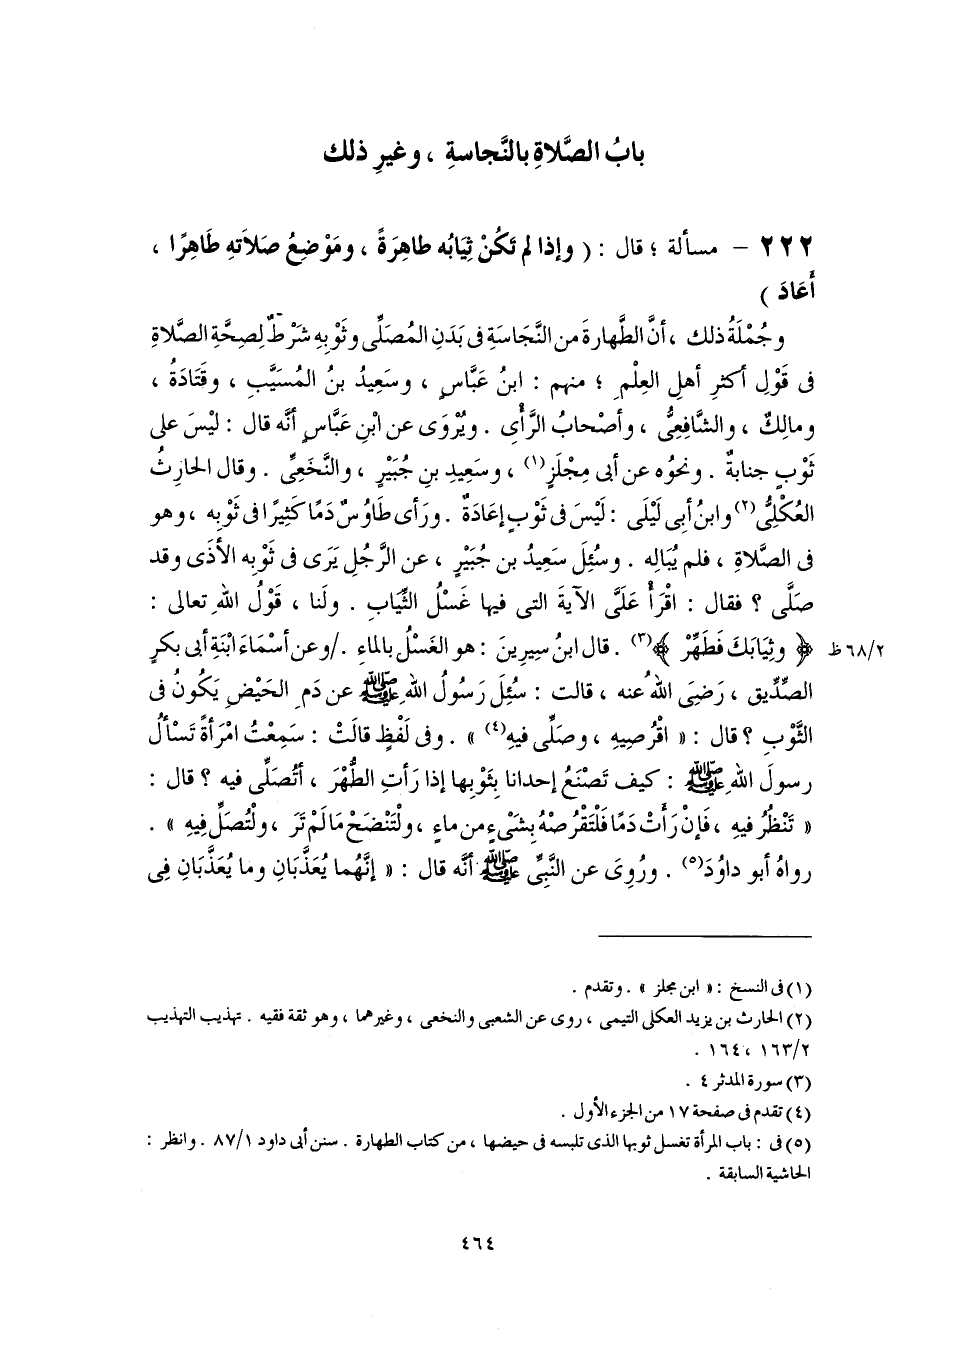 بابُ الصَّلاةِ بالنَّجاسةِ ، وغيرِ ذلك
٢٢٢ – مسألة ؛ قال : ( وإذا لم تَكُنْ ثِيَابُه طاهِرَةً ، ومَوْضِعُ صَلَاتِهِ طَاهِرًا ،
أَعَادَ )
وجُمْلَةُ ذلك ، أنَّ الطَّهارةَ من النَّجَاسَةِ فى بَدَنِ المُصَلِّى وثَوْبِهِ شَرْطٌ لِصِحَّةِ الصَّلاةِ
فى قَوْلِ أكثرِ أهلِ العِلْمِ ؛ منهم : ابنُ عَبَّاسٍ ، وسَعِيدُ بنُ المُسَيَّبِ ، وقَتَادَةُ ،
ومالِكٌ ، والشَّافِعِىُّ ، وأصْحابُ الرَّأْىِ . ويُرْوَى عن ابْنِ عَبَّاسٍ أنَّه قال : ليْسَ على
ثَوْبٍ جنابةٌ . ونحوُه عن أبى مِجْلَزٍ(١) ، وسَعِيدِ بنِ جُبَيْرٍ ، والنَّخَعِىِّ . وقال الحارِثُ
العُكْلِىُّ(٢) وابنُ أبى لَيْلَى : لَيْسَ فى ثَوْبٍ إعَادَةٌ . ورَأى طَاوُسٌ دَمًا كَثِيرًا فى ثَوْبِه ، وهو
فى الصَّلاةِ ، فلم يُبَالِه . وسُئِلَ سَعِيدُ بن جُبَيْرٍ ، عن الرَّجُلِ يَرَى فى ثَوْبِه الأذَى وقد
صَلَّى ؟ فقال : اقْرَأْ عَلَىَّ الآيةَ التى فيها غَسْلُ الثِّيَابِ . ولنا ، قَوْلُ اللهِ تعالى :
﴿ وثِيَابَكَ فَطَهِّرْ ﴾(٣) . قال ابنُ سِيرِينَ : هو الغَسْلُ بالماءِ . /وعن أسْمَاءَ ابْنَةِ أبى بكرٍ ٦٨/٢ظ
الصِّدِّيقِ ، رَضِىَ اللهُ عنه ، قالت : سُئِلَ رَسُولُ اللهِ ﷺ عن دَمِ الحَيْضِ يَكُونُ فى
الثَّوْبِ ؟ قال : « اقْرُصِيهِ ، وصَلِّى فيهِ(٤) » . وفى لَفْظٍ قالَتْ : سَمِعْتُ امْرَأةً تَسْألُ
رسولَ اللهِ ﷺ : كيف تَصْنَعُ إحدانا بِثَوْبِها إذا رَأتِ الطُّهْرَ ، أتُصَلِّى فيه ؟ قال :
« تَنْظُرُ فيهِ ، فَإنْ رَأَتْ دَمًا فَلْتَقْرُصْهُ بِشَىْءٍ مِن ماءٍ ، ولْتَنْضَحْ مَا لَمْ تَرَ ، ولْتُصَلِّ فِيهِ » .
رواهُ أبو داوُدَ(٥) . ورُوِىَ عن النَّبِىِّ ﷺ أنَّه قال : « إنَّهُما يُعَذَّبَانِ وما يُعَذَّبَانِ فِى
(١) فى النسخ : « ابن مجلز » . وتقدم .
(٢) الحارث بن يزيد العكلى التيمى ، روى عن الشعبى والنخعى ، وغيرهما ، وهو ثقة فقيه . تهذيب التهذيب
١٦٣/٢ ، ١٦٤ .
(٣) سورة المدثر ٤ .
(٤) تقدم فى صفحة ١٧ من الجزء الأول .
(٥) فى : باب المرأة تغسل ثوبها الذى تلبسه فى حيضها ، من كتاب الطهارة . سنن أبى داود ٨٧/١ . وانظر :
الحاشية السابقة .
٤٦٤